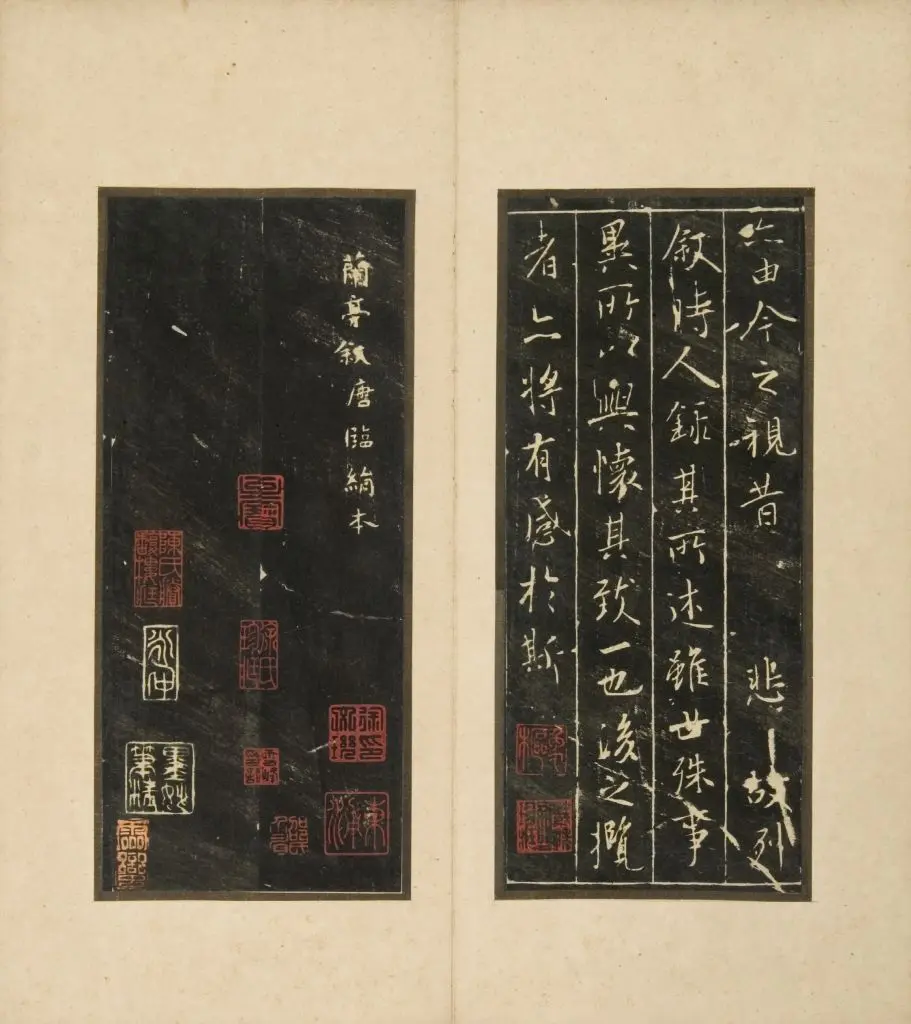 亦由今之視昔 悲 故列
叙時人錄其所述雖世殊事
異所以興懷其致一也後之攬
者亦將有感於斯
蘭亭叙唐臨絹本
永仲
墨妙筆精